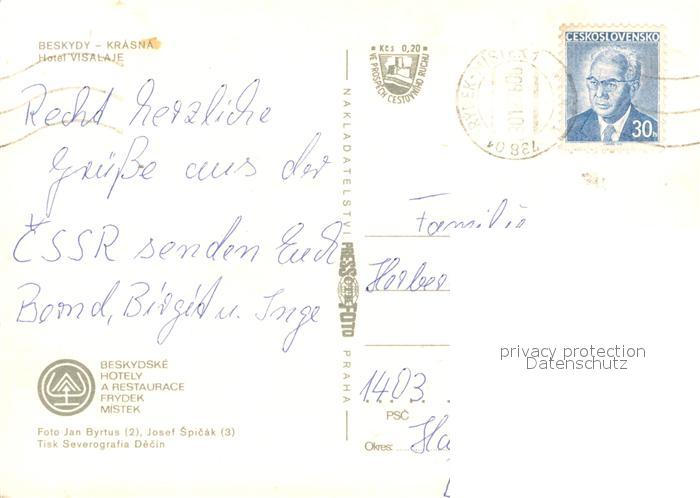 BESKYDY – KRÁSNÁ
Hotel VISALAJE
Recht herzliche
Grüße aus der
ČSSR senden Euch
Bernd, Birgit u. Inge
BESKYDSKÉ
HOTELY
A RESTAURACE
FRÝDEK
MÍSTEK
Foto Jan Byrtus (2), Josef Špičák (3)
Tisk Severografia Děčín
NAKLADATELSTVÍ
PRESSFOTO
PRAHA
Kčs 0,20
VE PROSPĚCH CESTOVNÍHO RUCHU
738 04
ČESKOSLOVENSKO
30h
Familie
1403
PSČ
Okres:
privacy protection
Datenschutz